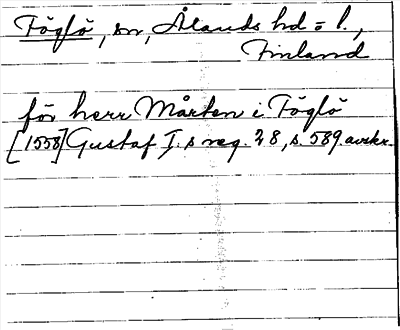 Föglö, sn, Ålands hd o l.,
Finland
för herr Mårten i Föglö
[1558] Gustaf I. s reg. 28, s. 589. avskr.